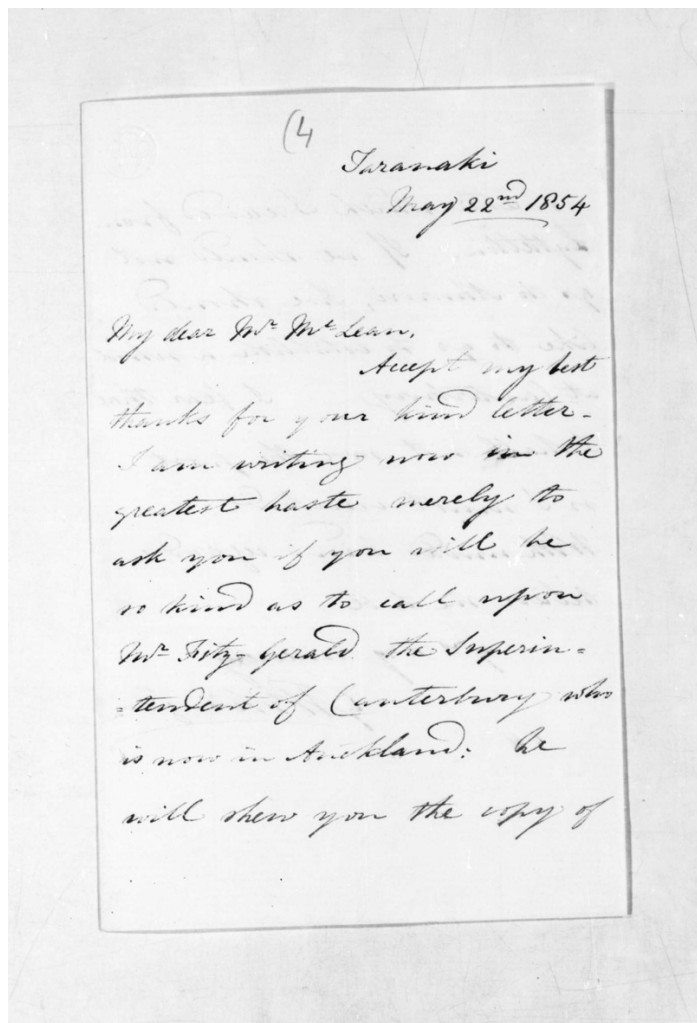 (4
Taranaki
May 22nd 1854
My dear Mr. McLean,
Accept my best
thanks for your kind letter.
I am writing now in the
greatest haste merely to
ask you if you will be
so kind as to call upon
Mr. Fitz-Gerald the Superin=
=tendent of Canterbury who
is now in Auckland: he
will shew you the copy of